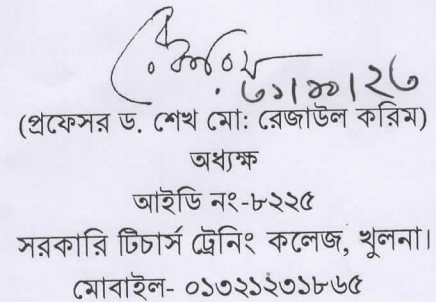 (প্রফেসর ড. শেখ মো: রেজাউল করিম)
অধ্যক্ষ
আইডি নং-৮২২৫
সরকারি টিচার্স ট্রেনিং কলেজ, খুলনা।
মোবাইল- ০১৩২১২৩১৮৬৫